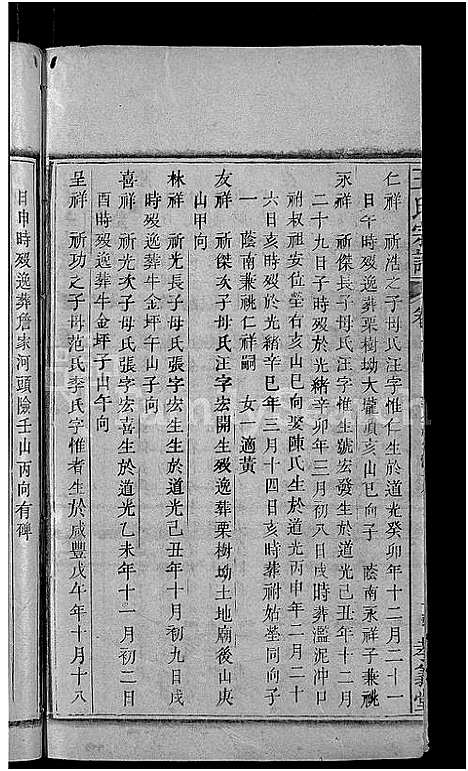 王氏宗譜
孝義堂
仁祥 祈浩之子母氏汪字惟仁生於道光癸卯年十二月二十一
日午時歿葬栗樹坳大壠頑亥山巳向子 蔭南永祥子兼祧
永祥 祈傑長子母氏汪字惟生號宏發生於道光己丑年十二月
二十九日子時歿於光緒辛卯年三月初八日戌時葬濫泥冲口
祔叔祖安位塋右亥山巳向娶陳氏生於道光丙申年二月二十
六日亥時歿於光緒辛巳年三月十四日亥時葬祔姑塋同向子
一 蔭南兼祧仁祥嗣 女一適黃
友祥 祈傑次子母氏汪字宏開生歿逸葬栗樹坳土地廟後山庚
山甲向
林祥 祈光長子母氏張字宏生生於道光己丑年十月初九日戌
時歿逸葬牛金坪午山子向
喜祥 祈光次子母氏張字宏喜生於道光乙未年十一月初二日
酉時歿逸葬牛金坪子山午向
呈祥 祈功之子母范氏李氏字惟者生於咸豐戊午年十月十八
日申時歿逸葬詹家河頭險壬山丙向有碑